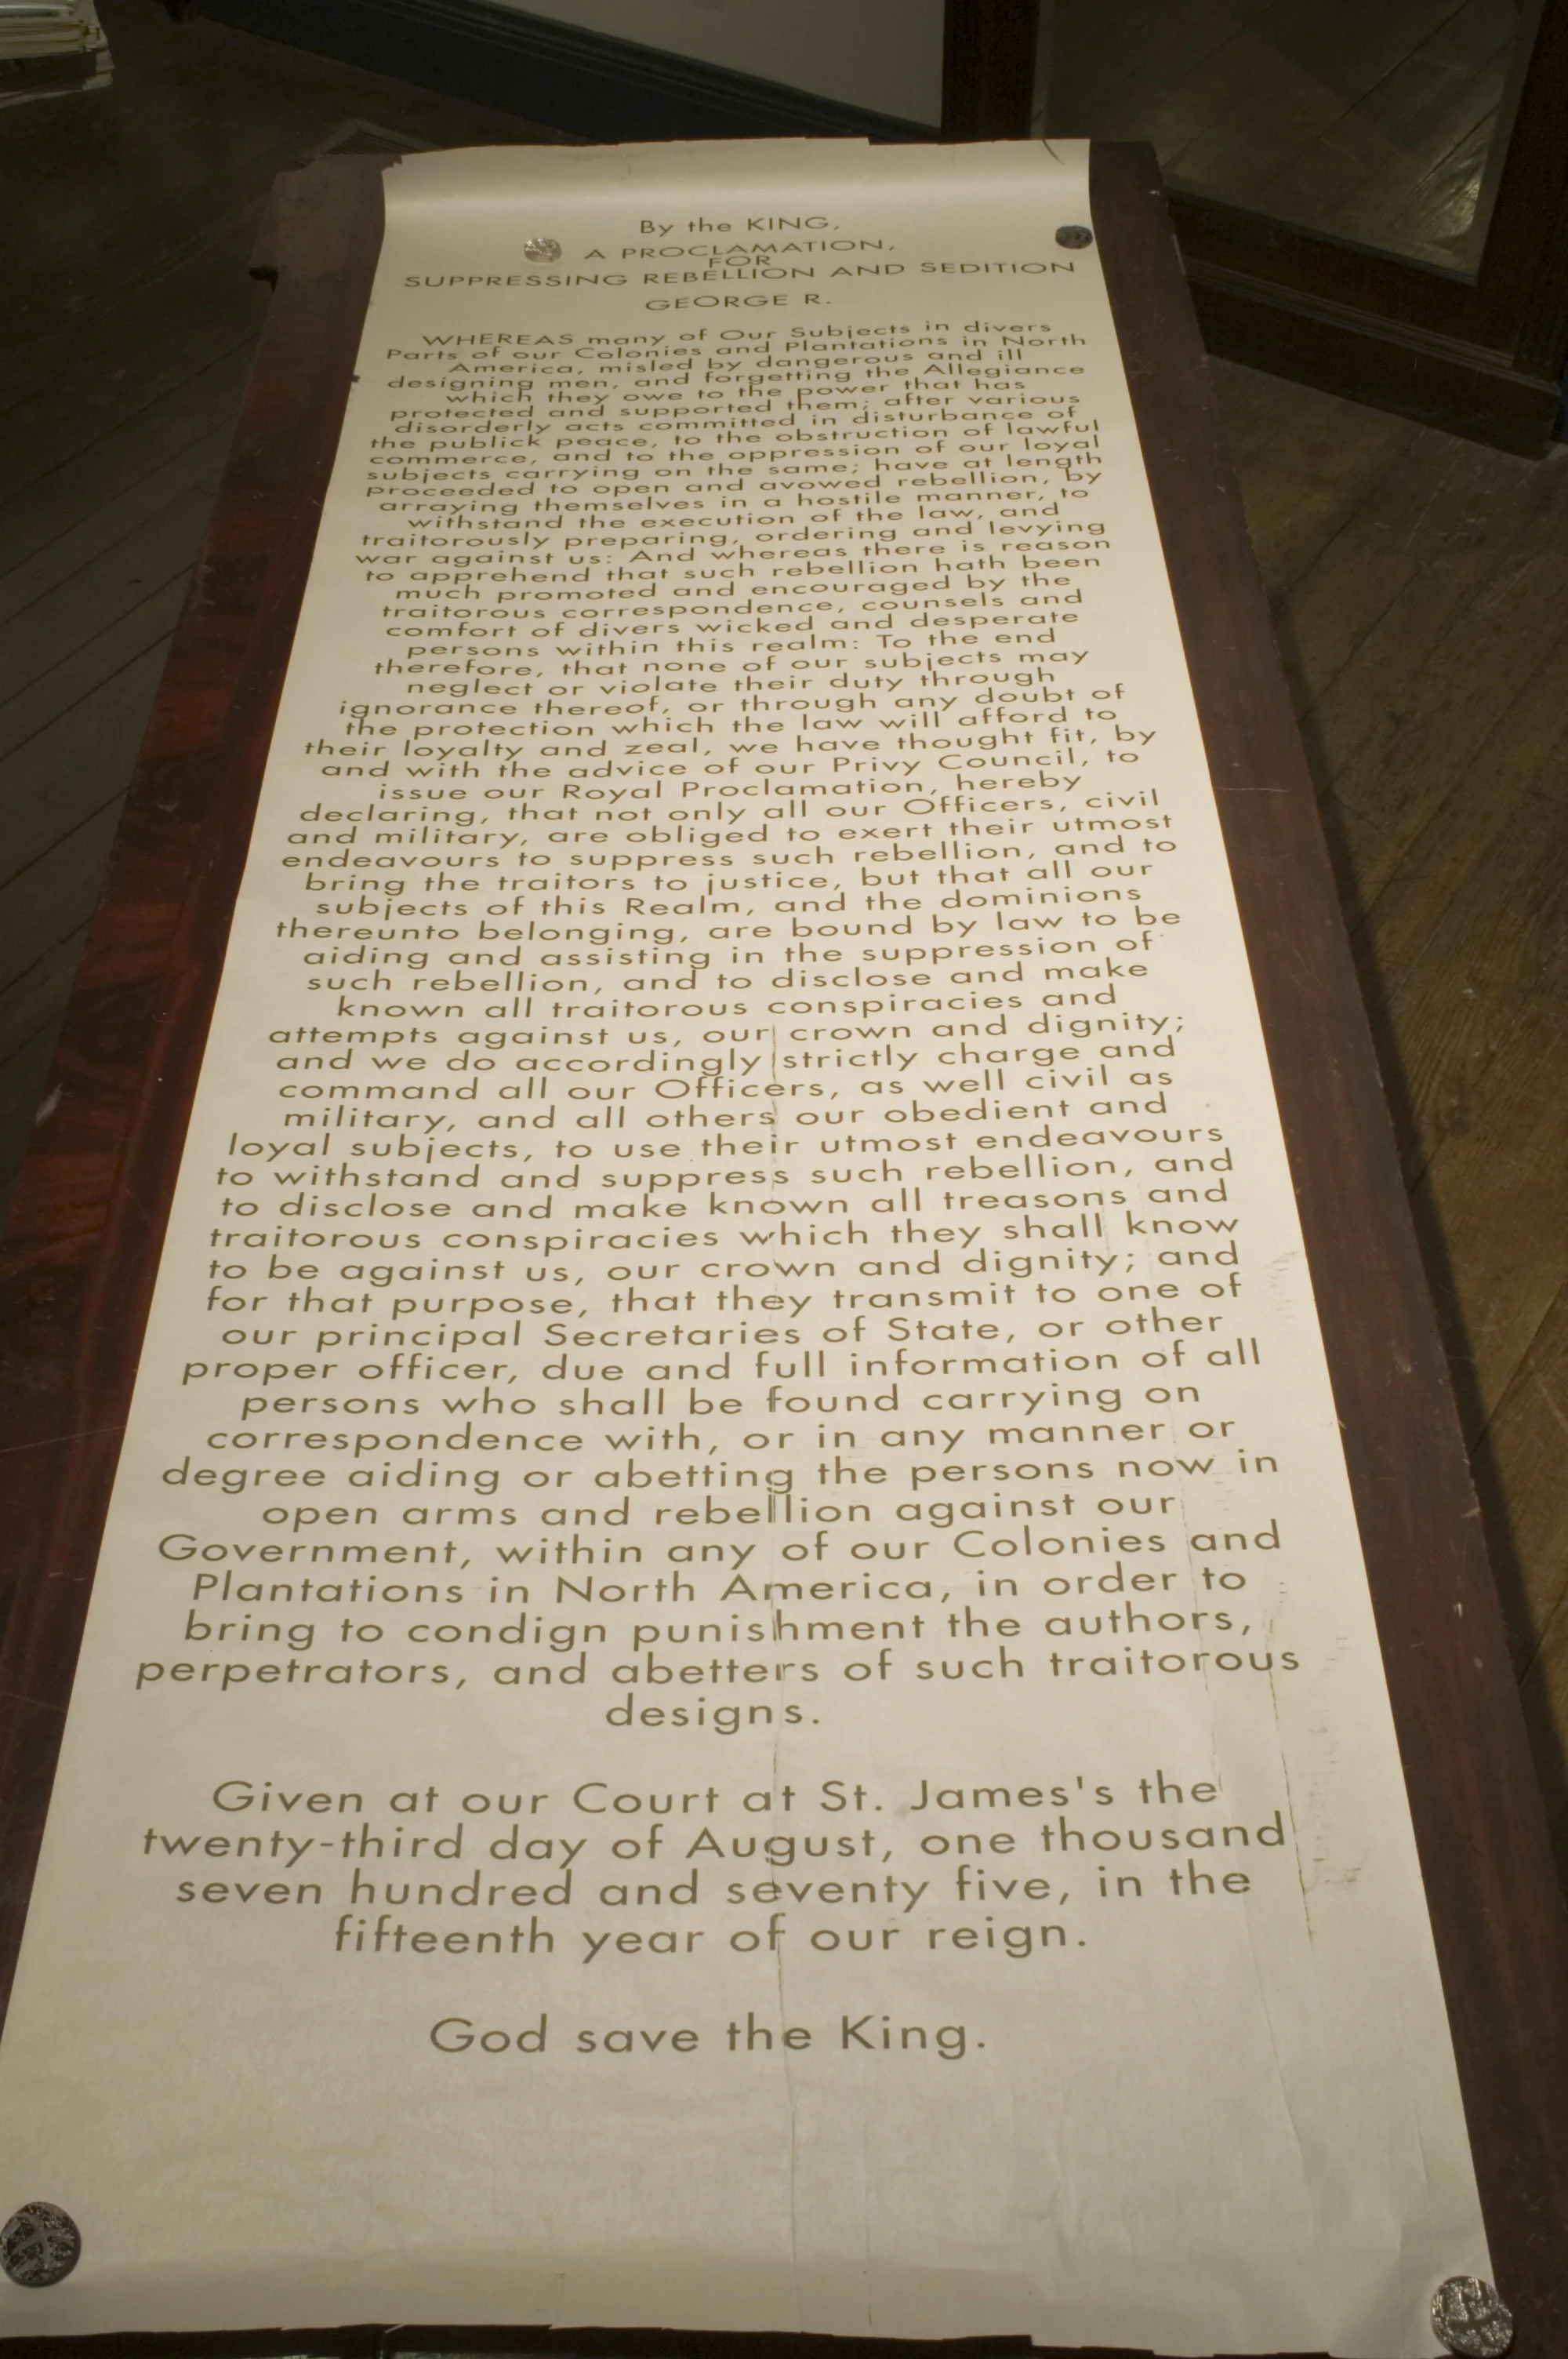 By the KING,
A PROCLAMATION,
FOR
SUPPRESSING REBELLION AND SEDITION
GEORGE R.
WHEREAS many of Our Subjects in divers
Parts of our Colonies and Plantations in North
America, misled by dangerous and ill
designing men, and forgetting the Allegiance
which they owe to the power that has
protected and supported them; after various
disorderly acts committed in disturbance of
the publick peace, to the obstruction of lawful
commerce, and to the oppression of our loyal
subjects carrying on the same; have at length
proceeded to open and avowed rebellion, by
arraying themselves in a hostile manner, to
withstand the execution of the law, and
traitorously preparing, ordering and levying
war against us: And whereas there is reason
to apprehend that such rebellion hath been
much promoted and encouraged by the
traitorous correspondence, counsels and
comfort of divers wicked and desperate
persons within this realm: To the end
therefore, that none of our subjects may
neglect or violate their duty through
ignorance thereof, or through any doubt of
the protection which the law will afford to
their loyalty and zeal, we have thought fit, by
and with the advice of our Privy Council, to
issue our Royal Proclamation, hereby
declaring, that not only all our Officers, civil
and military, are obliged to exert their utmost
endeavours to suppress such rebellion, and to
bring the traitors to justice, but that all our
subjects of this Realm, and the dominions
thereunto belonging, are bound by law to be
aiding and assisting in the suppression of
such rebellion, and to disclose and make
known all traitorous conspiracies and
attempts against us, our crown and dignity;
and we do accordingly strictly charge and
command all our Officers, as well civil as
military, and all others our obedient and
loyal subjects, to use their utmost endeavours
to withstand and suppress such rebellion, and
to disclose and make known all treasons and
traitorous conspiracies which they shall know
to be against us, our crown and dignity; and
for that purpose, that they transmit to one of
our principal Secretaries of State, or other
proper officer, due and full information of all
persons who shall be found carrying on
correspondence with, or in any manner or
degree aiding or abetting the persons now in
open arms and rebellion against our
Government, within any of our Colonies and
Plantations in North America, in order to
bring to condign punishment the authors,
perpetrators, and abetters of such traitorous
designs.
Given at our Court at St. James's the
twenty-third day of August, one thousand
seven hundred and seventy five, in the
fifteenth year of our reign.
God save the King.